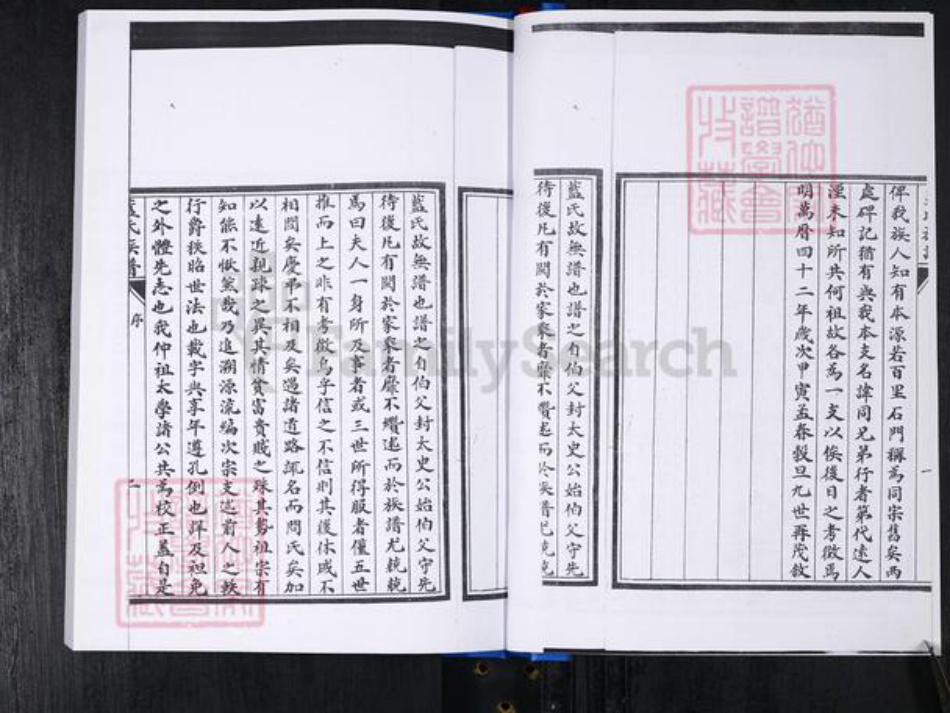 俾我族人知有本源若百里石門稱為同宗舊矣兩
處碑記猶有與我本支名諱同兄弟行者第代遠人
湮未知所共何祖故各為一支以俟後日之考徵焉
明萬曆四十二年歲次甲寅孟春穀旦九世再茂敘
一
藍氏故無譜也譜之自伯父封太史公始伯父守先
待後凡有關於家乘者靡不纘述而於族譜尤兢兢
藍氏故無譜也譜之自伯父封太史公始伯父守先
待後凡有關於家乘者靡不纘述而於族譜尤兢兢
焉曰夫人一身所及事者或三世所得服者僅五世
推而上之非有考徵烏乎信之不信則其後休戚不
相關矣慶弔不相及矣遇諸道路諏名而問氏矣加
以遠近親疎之異其情貧富貴賤之殊其勢祖宗有
知能不愀然哉乃追溯源流編次宗支述前人之軼
行爵秩昭世法也載字與享年遵孔例也詳及袒免
之外體先志也我仲祖太學諸公共為校正蓋自是
藍氏族譜
序
二
FamilySearch
譜學會
收藏